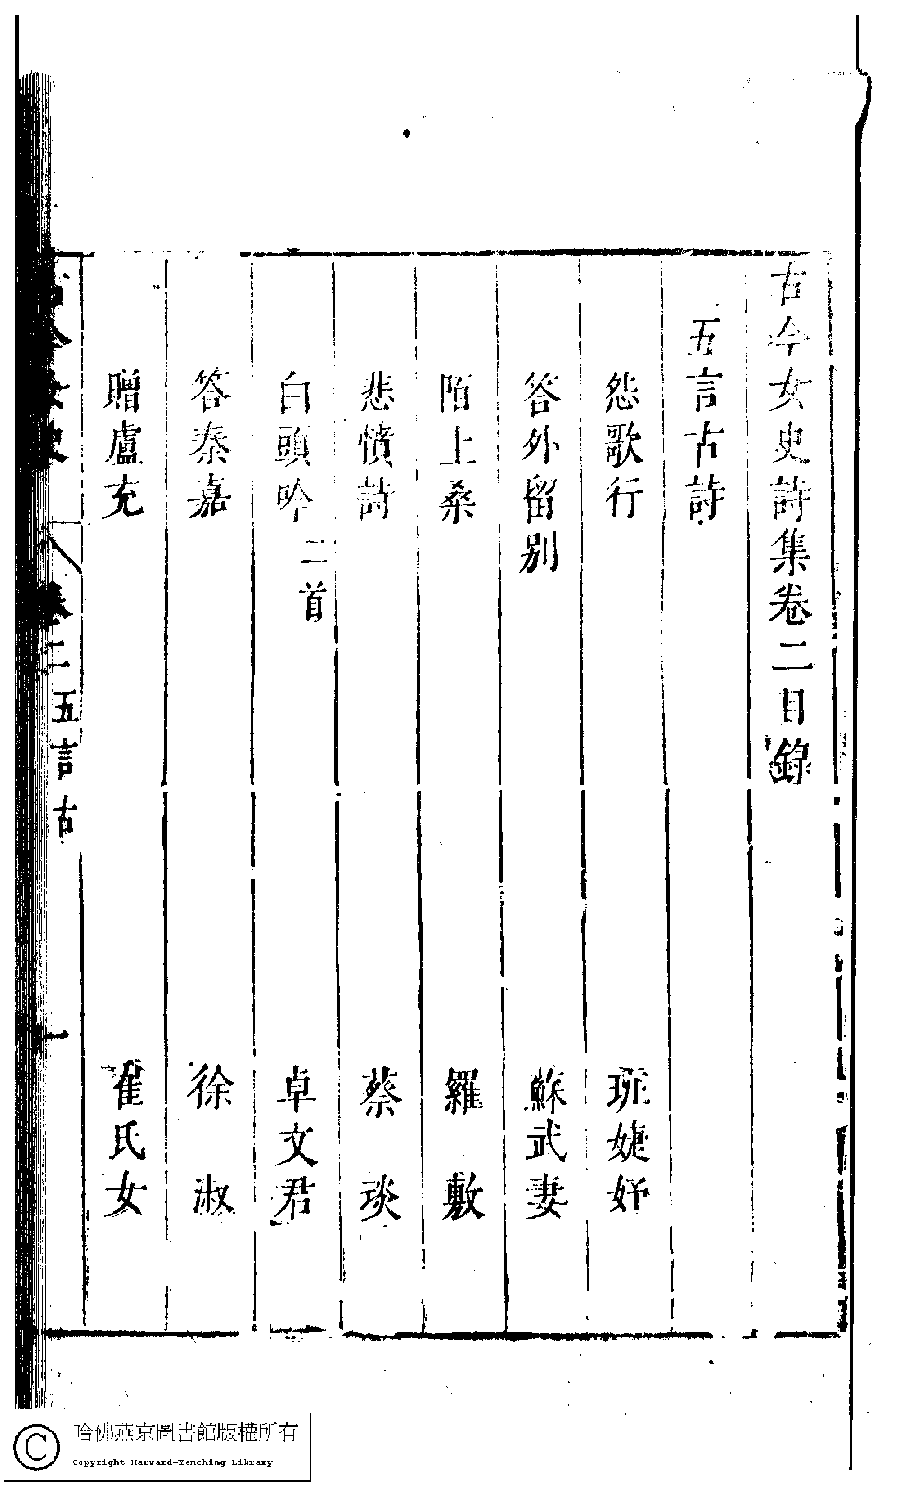 古今女史詩集卷二目錄
五言古詩
怨歌行 班婕妤
答外留別 蘇武妻
陌上桑 羅敷
悲憤詩 蔡琰
白頭吟 二首 卓文君
答秦嘉 徐淑
贈盧充 崔氏女
古今女史 卷二 五言古 一
哈佛燕京圖書館版權所有
Copyright Harvard-Yenching Library